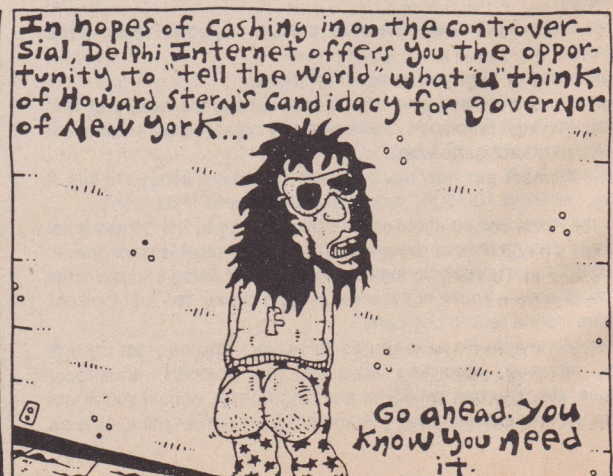 In hopes of cashing in on the controver-
sial, Delphi Internet offers you the oppor-
tunity to "tell the world" what "u" think
of Howard Stern's candidacy for governor
of New York...
F
Go ahead. You
know you need
it.